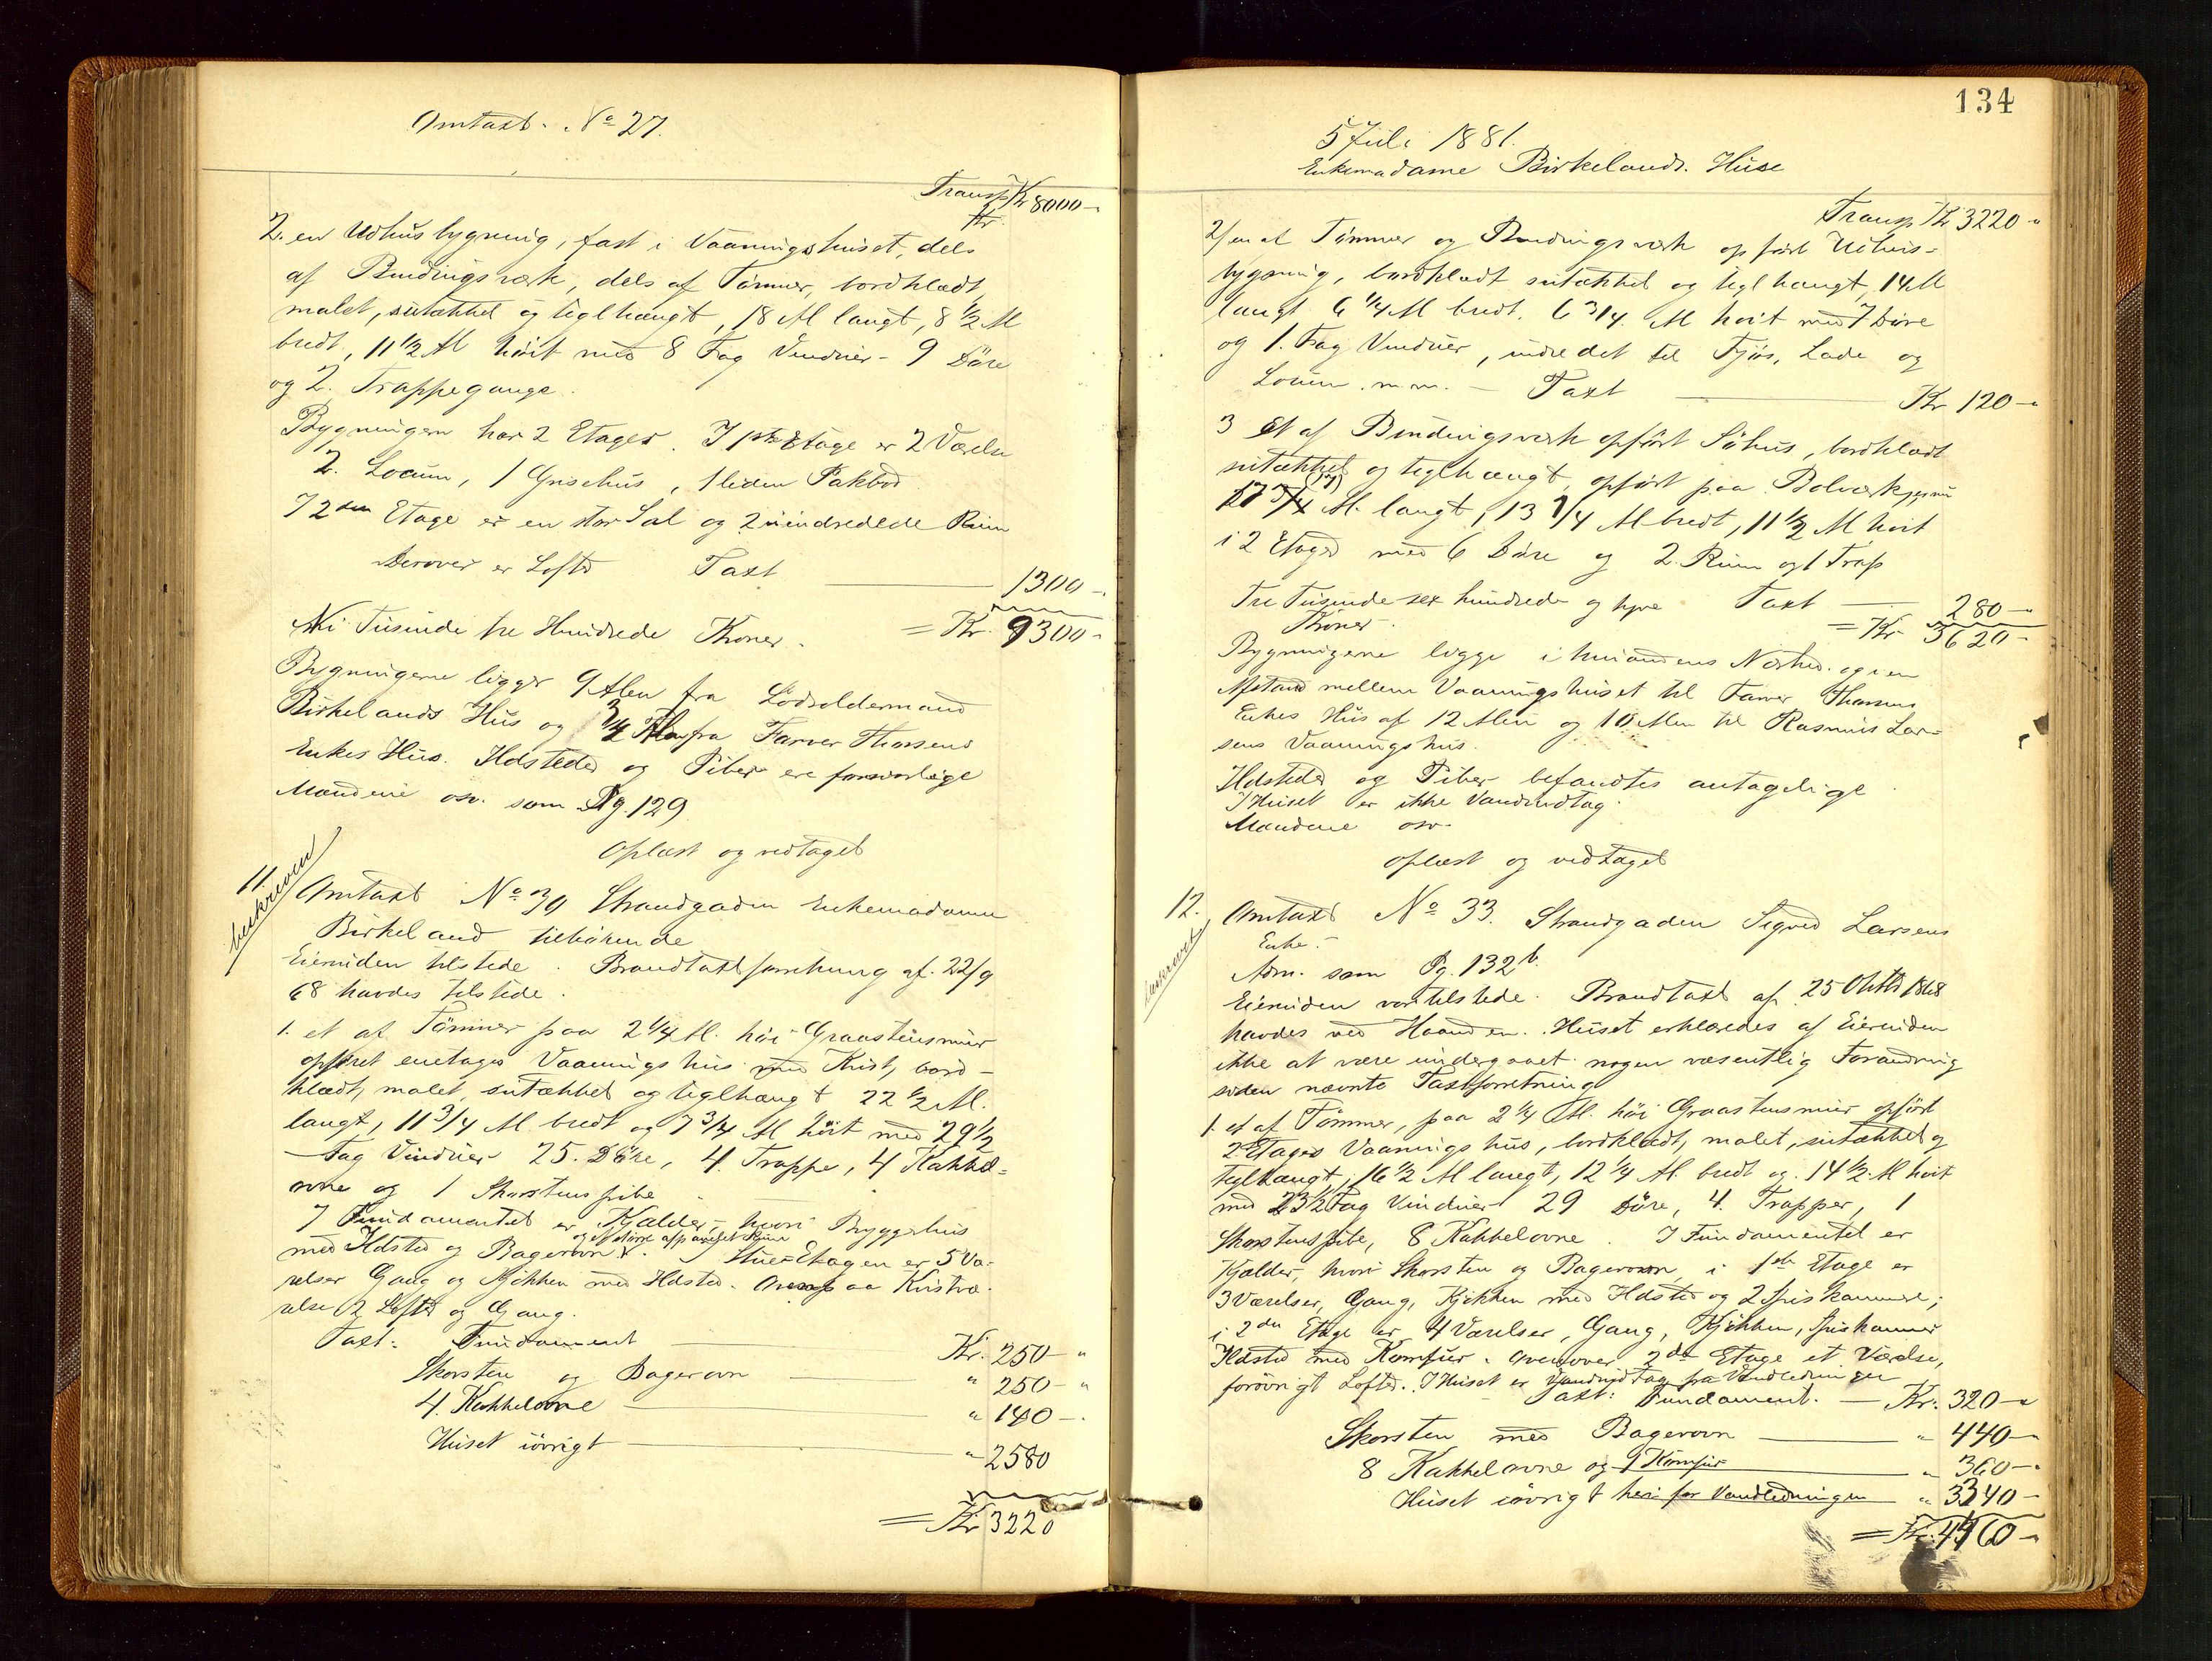 Omtaxt. No 27.
Transp Kr 8000-
Kr.
2. en Udhusbygning, fast i Vaaningshuset, dels
af Bindingsværk, dels af Tømmer, bordklædt,
malet, sutækket og teglhængt, 18 Al langt, 8 1/2 Al
bredt, 11 1/2 Al høit med 8 Fag Vinduer - 9 Døre
og 2 Trappegange.
Bygningen har 2 Etager. I 1ste Etage er 2 Værelser
2. Locum, 1 Grisehus, 1 liden Pakbod.
I 2den Etage er en stor Sal og 2 uindredede Rum
Derover er Lofts Taxt 1300-
Ni Tusinde tre Hundrede Kroner. = Kr. 9300-
Bygningerne ligger 9 Alen fra Lodsoldermand
Birkelands Hus og 3/4 Alen fra Farver Thorsens
Enkes Hus. Ildsteder og Piber ere forsvarlige
Mændene osv. som Pg. 129
Oplæst og vedtaget
11. beskreven
Omtaxt No 30 Strandgaden Enkemadame
Birkeland tilhørende
Eierinden tilstede. Brandtaxtforretning af 22/9
68 havdes tilstede.
1. et af Tømmer paa 2 1/4 Al. høi Graastensmur
opført enetages Vaaningshus med Kvist, bord-
klædt, malet, sutækket og teglhængt 22 1/2 Al.
langt, 11 3/4 Al bredt og 7 3/4 Al høit med 29 1/2
Fag Vinduer 25. Døre, 4. Trappe, 4 Kakkel-
ovne og 1 Skorstenspibe
I Fundamentet er Kjælder, hvori Bryggerhus
og et større afpanelet Rum
med Ildsted og Bagerovn. I Stue-Etagen er 5 Væ-
relser Gang og Kjøkken med Ildsted. Ovenpaa Kvistvæ-
relse 2 Lofts og Gang.
Taxt: Fundament Kr. 250- "
Skorsten og Bagerovn " 250- "
4. Kakkelovne " 140-
Huset iøvrigt " 2580
= Kr 3220
134
5 Juli 1881.
Enkemadame Birkelands. Huse
Transp Kr 3220-
2/ en af Tømmer og Bindingsværk opført Udhus-
bygning, bordklædt sutækket og teglhængt, 14 Al
langt 6 1/4 Al bredt. 6 3/4 Al høit med 7 Døre
og 1. Fag Vinduer, indredet til Fjøs, Lade og
Locum. m.m. - Taxt Kr 120-
3 Et af Bindingsværk opført Søhus, bordklædt
sutækket og teglhængt, opført paa Bolværk,
17 3/4 Al. langt, 13 1/4 Al bredt, 11 1/2 Al høit
i 2 Etager med 6 Døre og 2. Rum og 1 Trap
Tre Tusinde sex hundrede og tyve Taxt 280-
Kroner. = Kr 3620-
Bygningerne ligge i hinandens Nærhed og i en
Afstand mellem Vaaningshuset til Farver Thorsens
Enkes Hus af 12 Alen og 10 Alen til Rasmus Lar-
sens Vaaningshus.
Ildsteder og Piber befandtes antagelige.
I Huset er ikke Vandindtag.
Mændene osv.
Oplæst og vedtaget
12.
Omtaxt No 33. Strandgaden Sigved Larsens
Enke.-
Adm. som Pg. 132 b.
Eierinden var tilstede. Brandtaxt af 25 Oktb 1868
havdes ved Haanden. Huset erklæredes af Eierinden
ikke at være undergaaet nogen væsentlig Forandring
siden nævnte Taxtforretning
1. et af Tømmer, paa 2 1/4 Al. høi Graastensmur opført
2 Etages Vaaningshus, bordklædt, malet, sutækket og
teglhængt, 16 1/2 Al langt, 12 1/4 Al. bredt og 14 1/2 Al høit
med 23 1/2 Fag Vinduer 29 Døre, 4. Trapper, 1
Skorstenspibe, 8 Kakkelovne. I Fundamentet er
Kjælder, hvori Skorsten og Bagerovn, i 1ste Etage er
3 Værelser, Gang, Kjøkken med Ildsted og 2 Spiskammere;
i 2den Etage er 4 Værelser, Gang, Kjøkken, Spiskammer
Ildsted med Komfur. Ovenover 2den Etage et Værelse,
forøvrigt Lofts. I Huset er Vandindtag fra Vandledningen
Taxt: Fundament. - Kr. 320-
Skorsten med Bagerovn " 440-
8 Kakkelovne og 1 Komfur " 360-
Huset iøvrigt heri for Vandledningen " 3340-
= Kr. 4460-